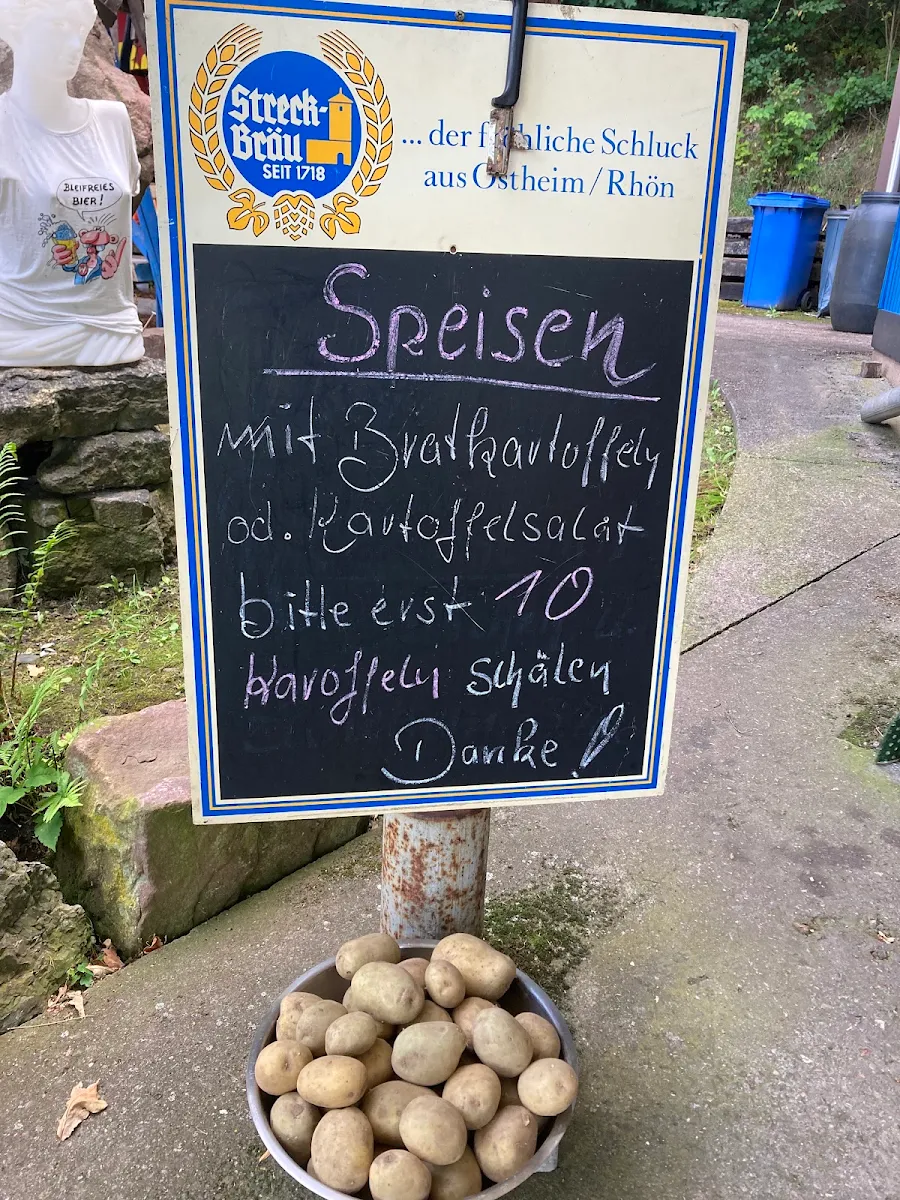 BLEIFREIES
BIER!
Streck-
Bräu
SEIT 1718
... der fröhliche Schluck
aus Ostheim/Rhön
Speisen
mit Bratkartoffeln
od. Kartoffelsalat
bitte erst 10
Karoffeln schälen
Danke!